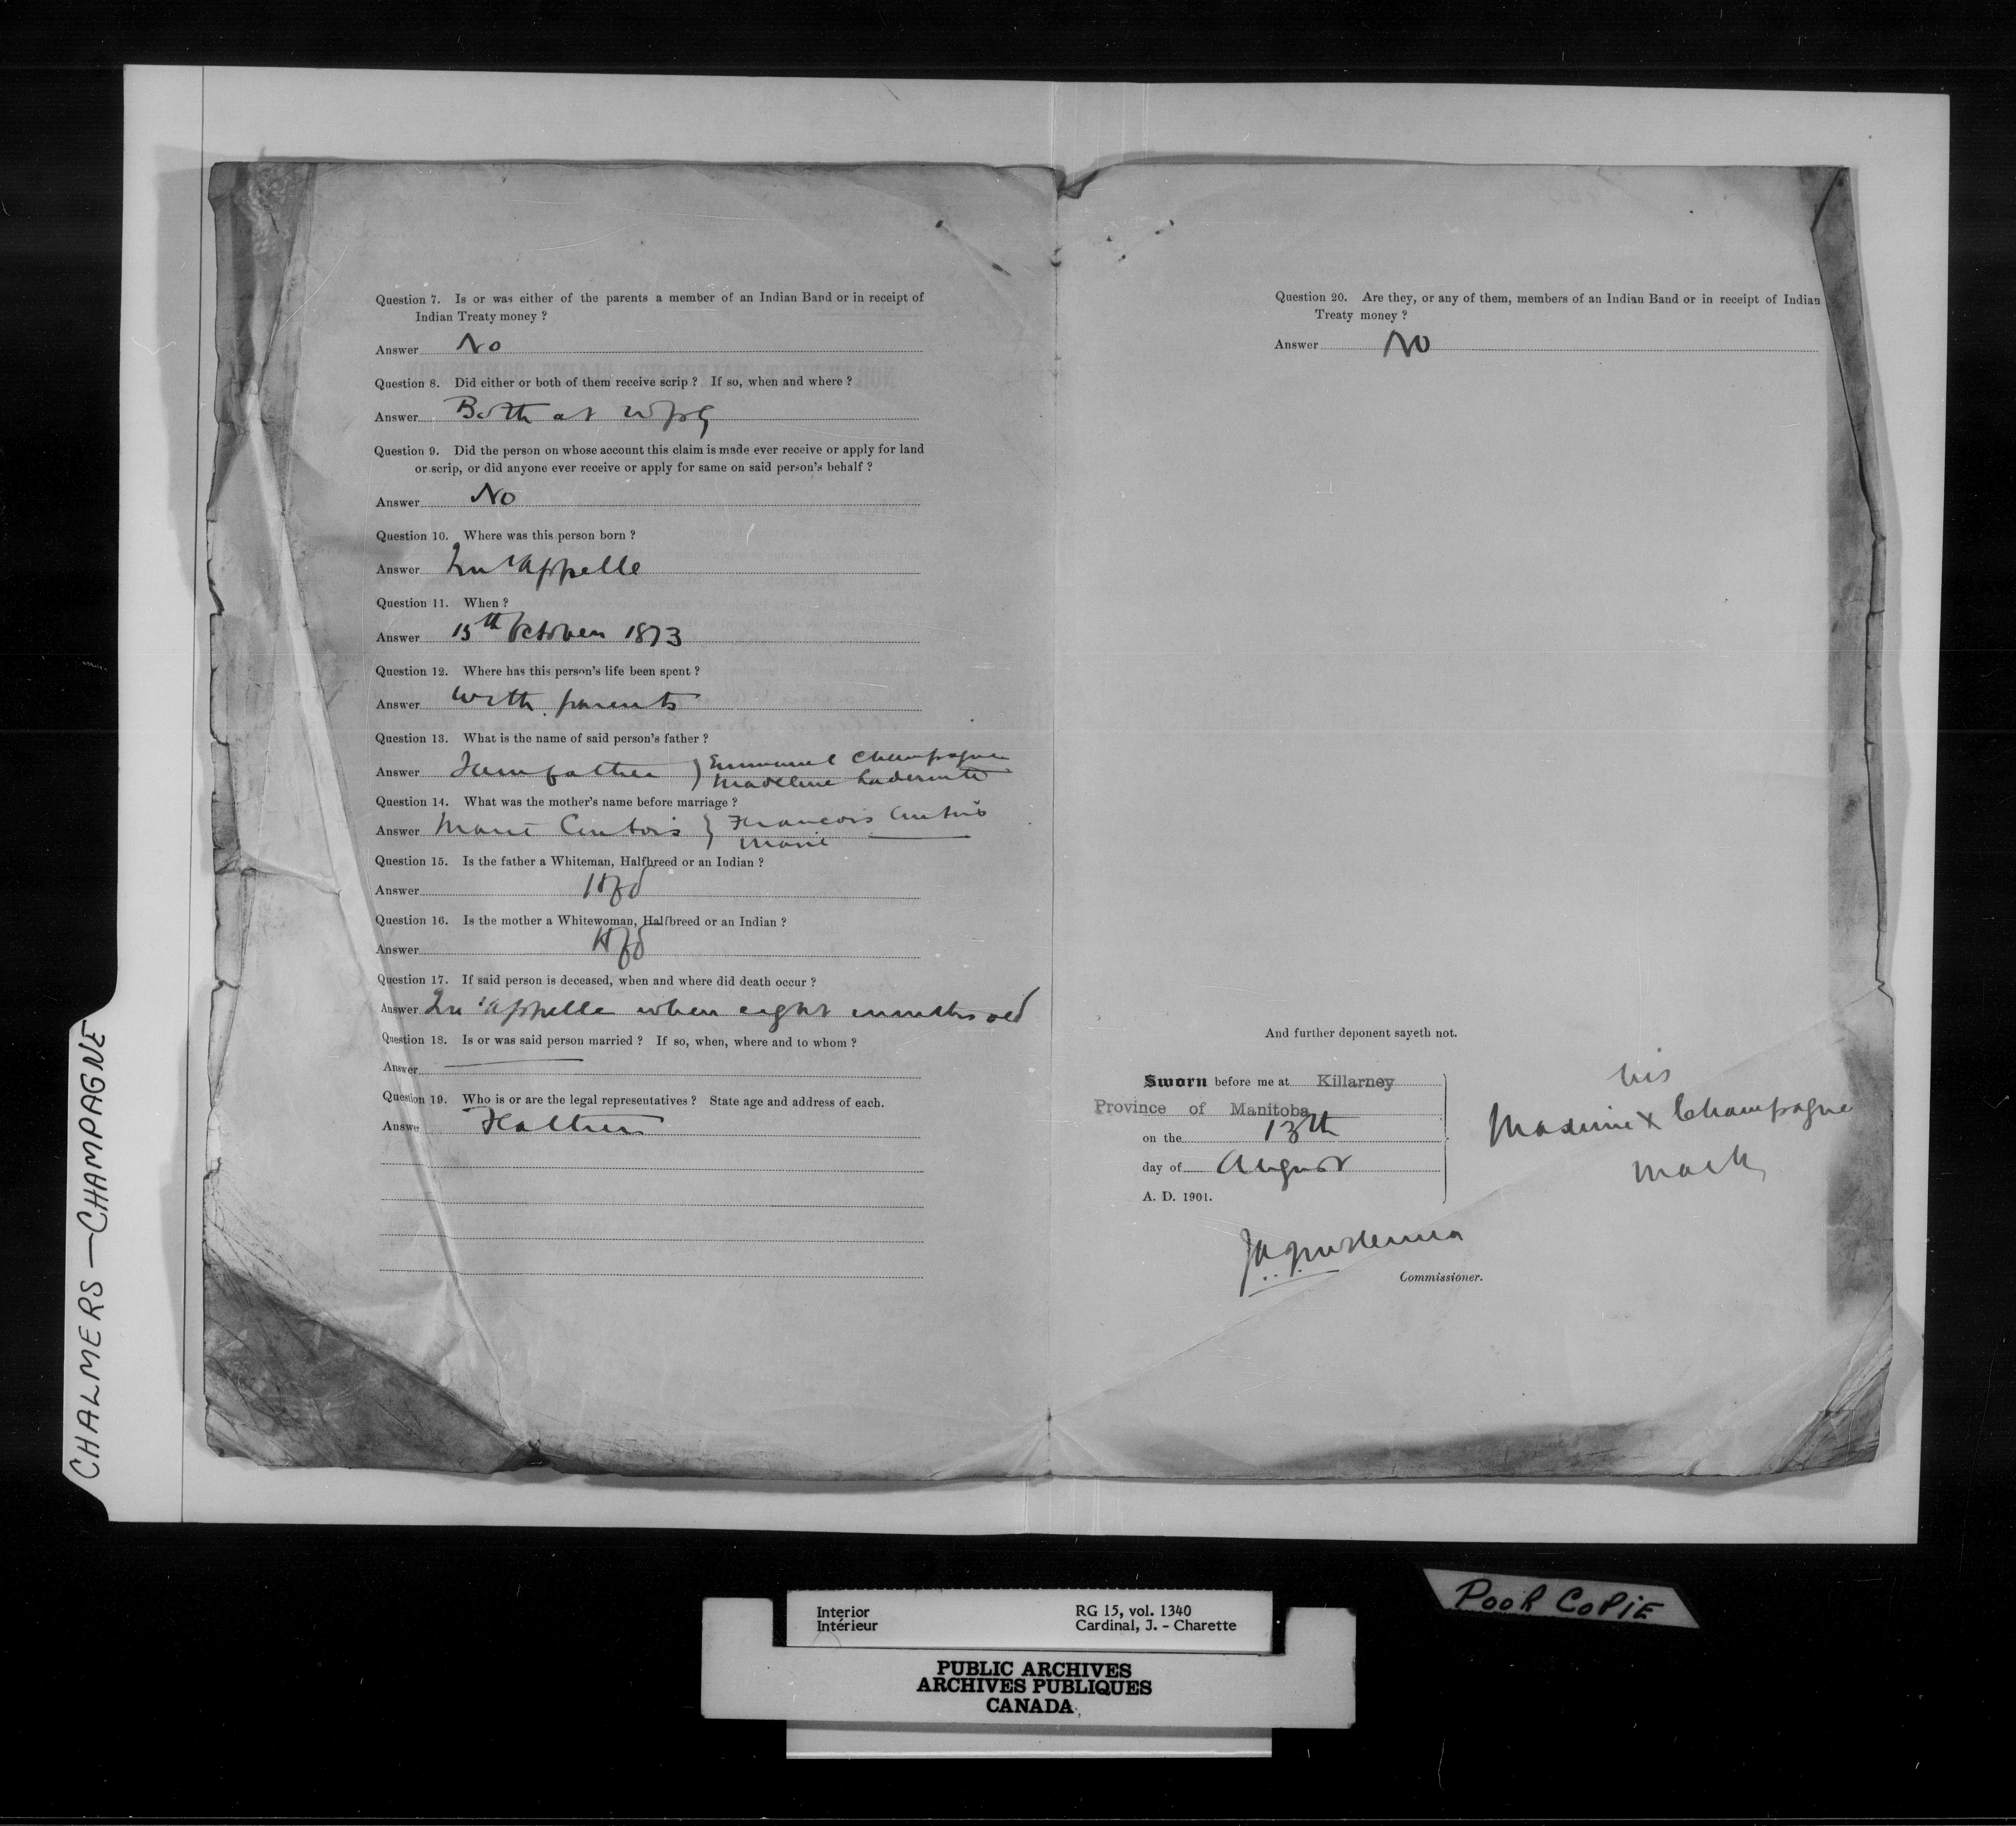 Question 7. Is or was either of the parents a member of an Indian Band or in receipt of
Indian Treaty money ?
Answer No
Question 8. Did either or both of them receive scrip ? If so, when and where ?
Answer Both at Wpg
Question 9. Did the person on whose account this claim is made ever receive or apply for land
or scrip, or did anyone ever receive or apply for same on said person's behalf ?
Answer No
Question 10. Where was this person born ?
Answer Qu'Appelle
Question 11. When ?
Answer 15th October 1873
Question 12. Where has this person's life been spent ?
Answer With parents
Question 13. What is the name of said person's father ?
Answer } Emmanuel Champagne
Madeline
Question 14. What was the mother's name before marriage ?
Answer Marie } Francois
Marie
Question 15. Is the father a Whiteman, Halfbreed or an Indian ?
Answer Hfd
Question 16. Is the mother a Whitewoman, Halfbreed or an Indian ?
Answer Hfd
Question 17. If said person is deceased, when and where did death occur ?
Answer Qu'Appelle when eight months old
Question 18. Is or was said person married ? If so, when, where and to whom ?
Answer —
Question 19. Who is or are the legal representatives ? State age and address of each.
Answe Father
Question 20. Are they, or any of them, members of an Indian Band or in receipt of Indian
Treaty money ?
Answer No
And further deponent sayeth not.
Sworn before me at Killarney
Province of Manitoba
on the 13th
day of August
A. D. 1901.
his
X Champagne
mark
Commissioner.
CHALMERS — CHAMPAGNE
POOR COPIE
Interior RG 15, vol. 1340
Intérieur Cardinal, J. - Charette
PUBLIC ARCHIVES
ARCHIVES PUBLIQUES
CANADA